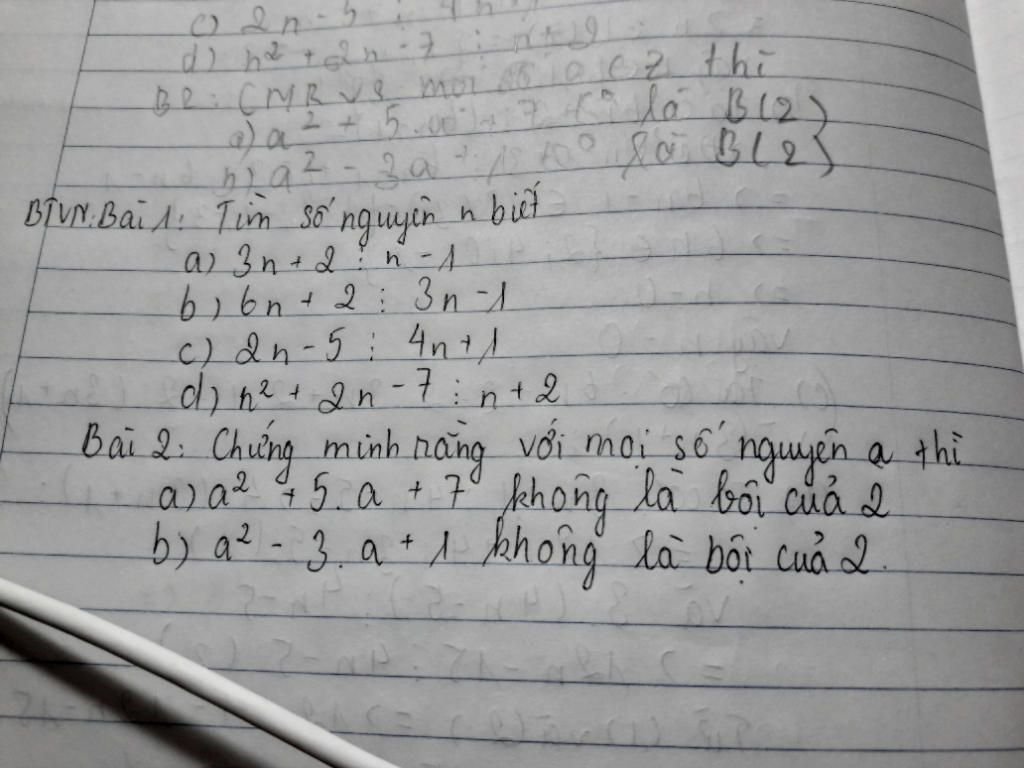 c) 2n - 5 ⋮ 4n
d) n² + 2n - 7 ⋮ n + 2
B2: CMR với mọi số a ∈ Z thì
a) a² + 5.a + 7 là B(2)
b) a² - 3a + 1 là B(2)
BTVN: Bài 1: Tìm số nguyên n biết
a) 3n + 2 ⋮ n - 1
b) 6n + 2 ⋮ 3n - 1
c) 2n - 5 ⋮ 4n + 1
d) n² + 2n - 7 ⋮ n + 2
Bài 2: Chứng minh rằng với mọi số nguyên a thì
a) a² + 5.a + 7 không là bội của 2
b) a² - 3.a + 1 không là bội của 2.